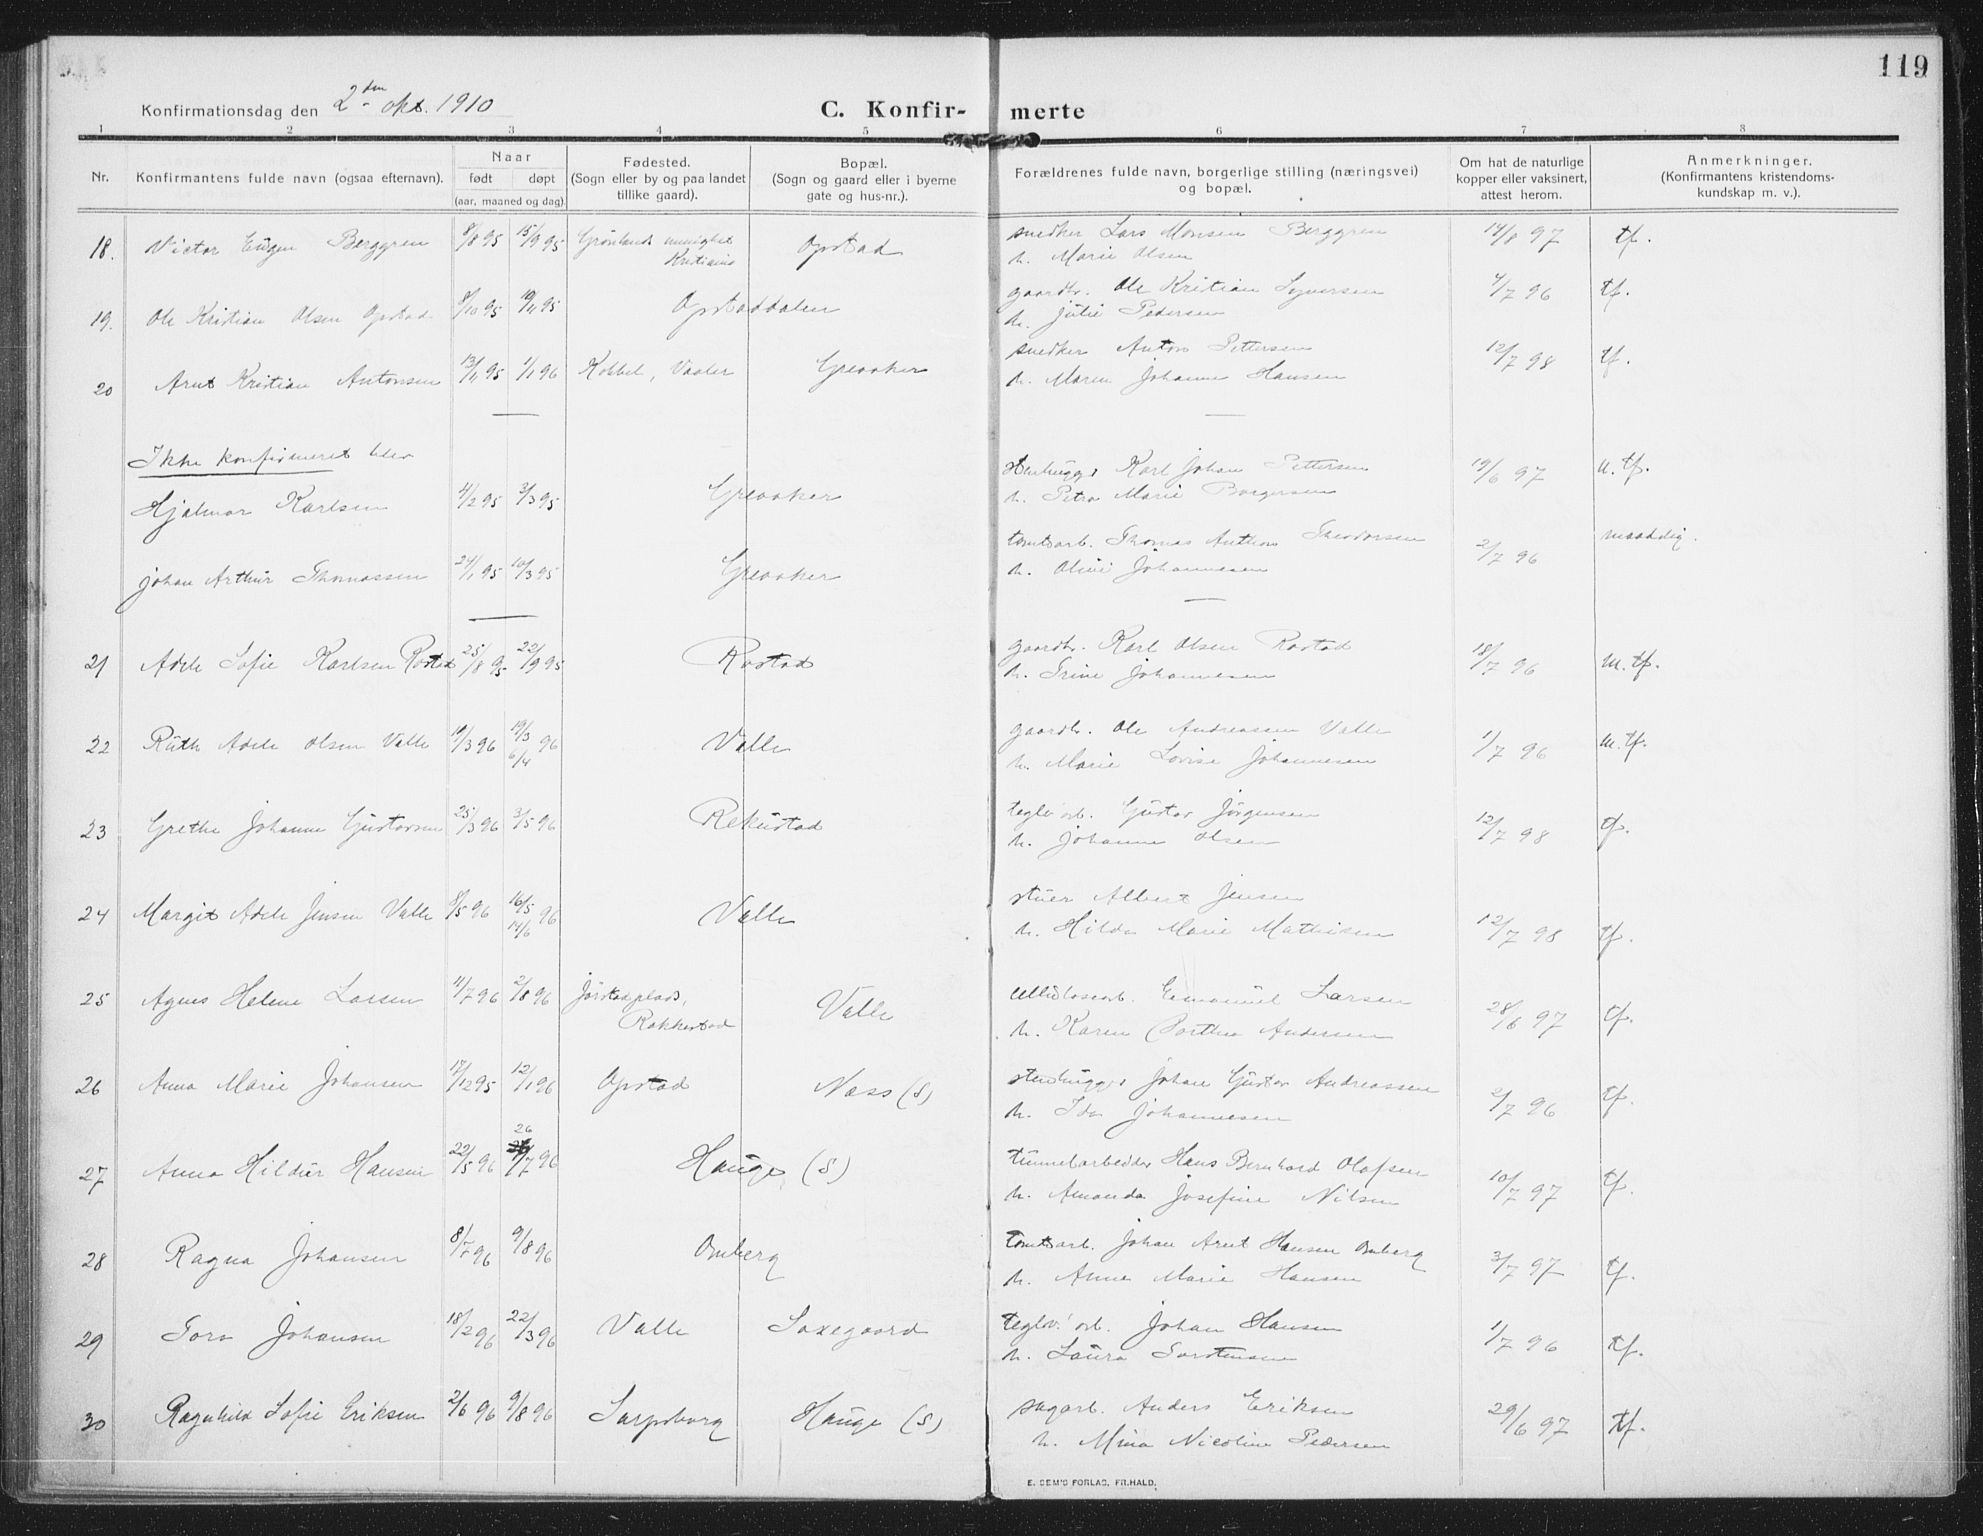 119
Konfirmationsdag den 2den okt. 1910
C. Konfirmerte
1 2 3 4 5 6 7 8
Nr. Konfirmantens fulde navn (ogsaa efternavn). Naar født døpt (aar, maaned og dag). Fødested. (Sogn eller by og paa landet tillike gaard). Bopæl. (Sogn og gaard eller i byerne gate og hus-nr.). Forældrenes fulde navn, borgerlige stilling (næringsvei) og bopæl. Om hat de naturlige kopper eller vaksinert, attest herom. Anmerkninger. (Konfirmantens kristendoms-kundskap m. v.).
18. Victor Eugen Berggren 8/8 95 15/9 95 Grønlands menighet Kristiania Opstad snedker Lars Monsen Berggren 14/8 97 tf.
h. Marie Olsen
19. Ole Kristian Olsen Opstad 8/10 95 10/11 95 Opstaddalen gaardbr. Ole Kristian Syversen 4/7 96 tf.
h. Julie Pedersen
20 Arnt Kristian Antonsen 13/11 95 1/1 96 Kobbel, Vaaler Greaaker snedker Anton Pettersen 12/7 98 tf.
h. Maren Johanne Hansen
Ikke konfirmeret blev
Hjalmar Karlsen 4/2 95 3/3 95 Greaaker stenhugger Karl Johan Pettersen 19/6 97 u. tf.
h. Petra Marie Borgersen
Johan Arthur Thomassen 24/1 95 10/3 95 Greaaker tomtearb. Thomas Anthon Theodorsen 2/7 96 maadelig.
h. Oline Johannesen
21 Adele Sofie Karlsen Rostad 25/8 95 22/9 95 Rostad gaardbr. Karl Olsen Rostad 18/7 96 m. tf.
h. Trine Johannesen
22 Ruth Adele Olsen Valle 4/3 96 19/3 6/4 96 Valle gaardbr. Ole Andreassen Valle 1/7 96 m. tf.
h. Marie Lovise Johannesen
23 Grethe Johanne Gustavsen 25/3 96 3/5 96 Rekustad teglv. arb. Gustav Jørgensen 12/7 98 tf.
h. Johanne Olsen
24 Margit Adele Jensen Valle 8/5 96 16/5 14/6 96 Valle stuer Albert Jensen 12/7 98 tf.
h. Hilda Marie Mathisen
25 Agnes Helene Larsen 11/7 96 2/8 96 Jørstadplads, Rakkestad Valle cellulosearb. Emanuel Larsen 28/6 97 tf.
h. Karen Andersen
26 Anna Marie Johansen 17/12 95 12/1 96 Opstad Næss (S) stenhugger Johan Gustav Andreassen 2/7 96 tf.
h. Ida Johannesen
27 Anna Hildur Hansen 22/5 96 26/7 96 Hauge (S) tunnelarbeider Hans Bernhard Olafsen 10/7 97 tf.
h. Amanda Josefine Nilsen
28 Ragna Johansen 8/7 96 9/8 96 Omberg tomtearb. Johan Arnt Hansen Omberg 3/7 97 tf.
h. Anna Marie Hansen
29 Tora Johansen 18/2 96 22/3 96 Valle Saxegaard teglv. arb. Johan Hansen 1/7 96 tf.
h. Laura Torstensen
30 Ragnhild Sofie Eriksen 2/6 96 9/8 96 Sarpsborg Hauge (S) sagarb. Anders Eriksen 29/6 97 tf.
h. Mina Nicoline Pedersen
E. SEM'S FORLAG, FR.HALD.